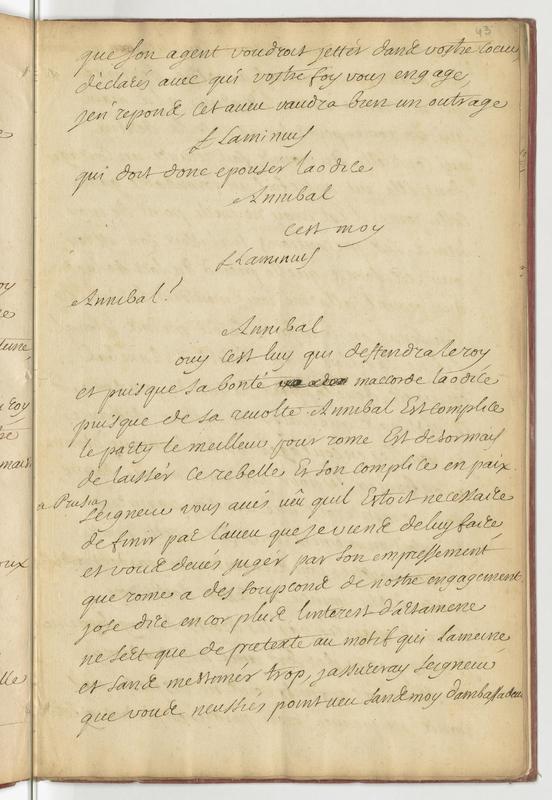 43
que son agent voudroit jetter dans vostre coeur
déclarés avec qui vostre foy vous engage
j'en repond, cet aveu vaudra bien un outrage
flaminius
qui doit donc epouser laodice
Annibal
cest moy
flaminius
Annibal!
Annibal
ouy cest luy qui deffendra le roy
et puisque sa bonté maccorde laodice
puisque de sa revolte Annibal Est complice
le party le meilleur pour rome Est desormais
de laisser ce rebelle Et son complice en paix
a Prusias
seigneur vous avés vëu quil Estoit necessaire
de finir par laveu que je viens de luy faire
et vous devés juger par son empressement
que rome a des soupçons de nostre engagement
jose dire encor plus linterest dartamene
ne sert que de pretexte au motif qui lameine
et sans mestimer trop, jassureray seigneur
que vous neussiés point veu sans moy dambassadeur